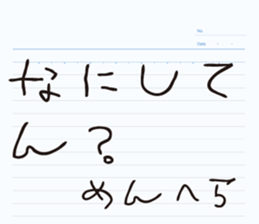 No.
Date
なにして
ん?
めんへら